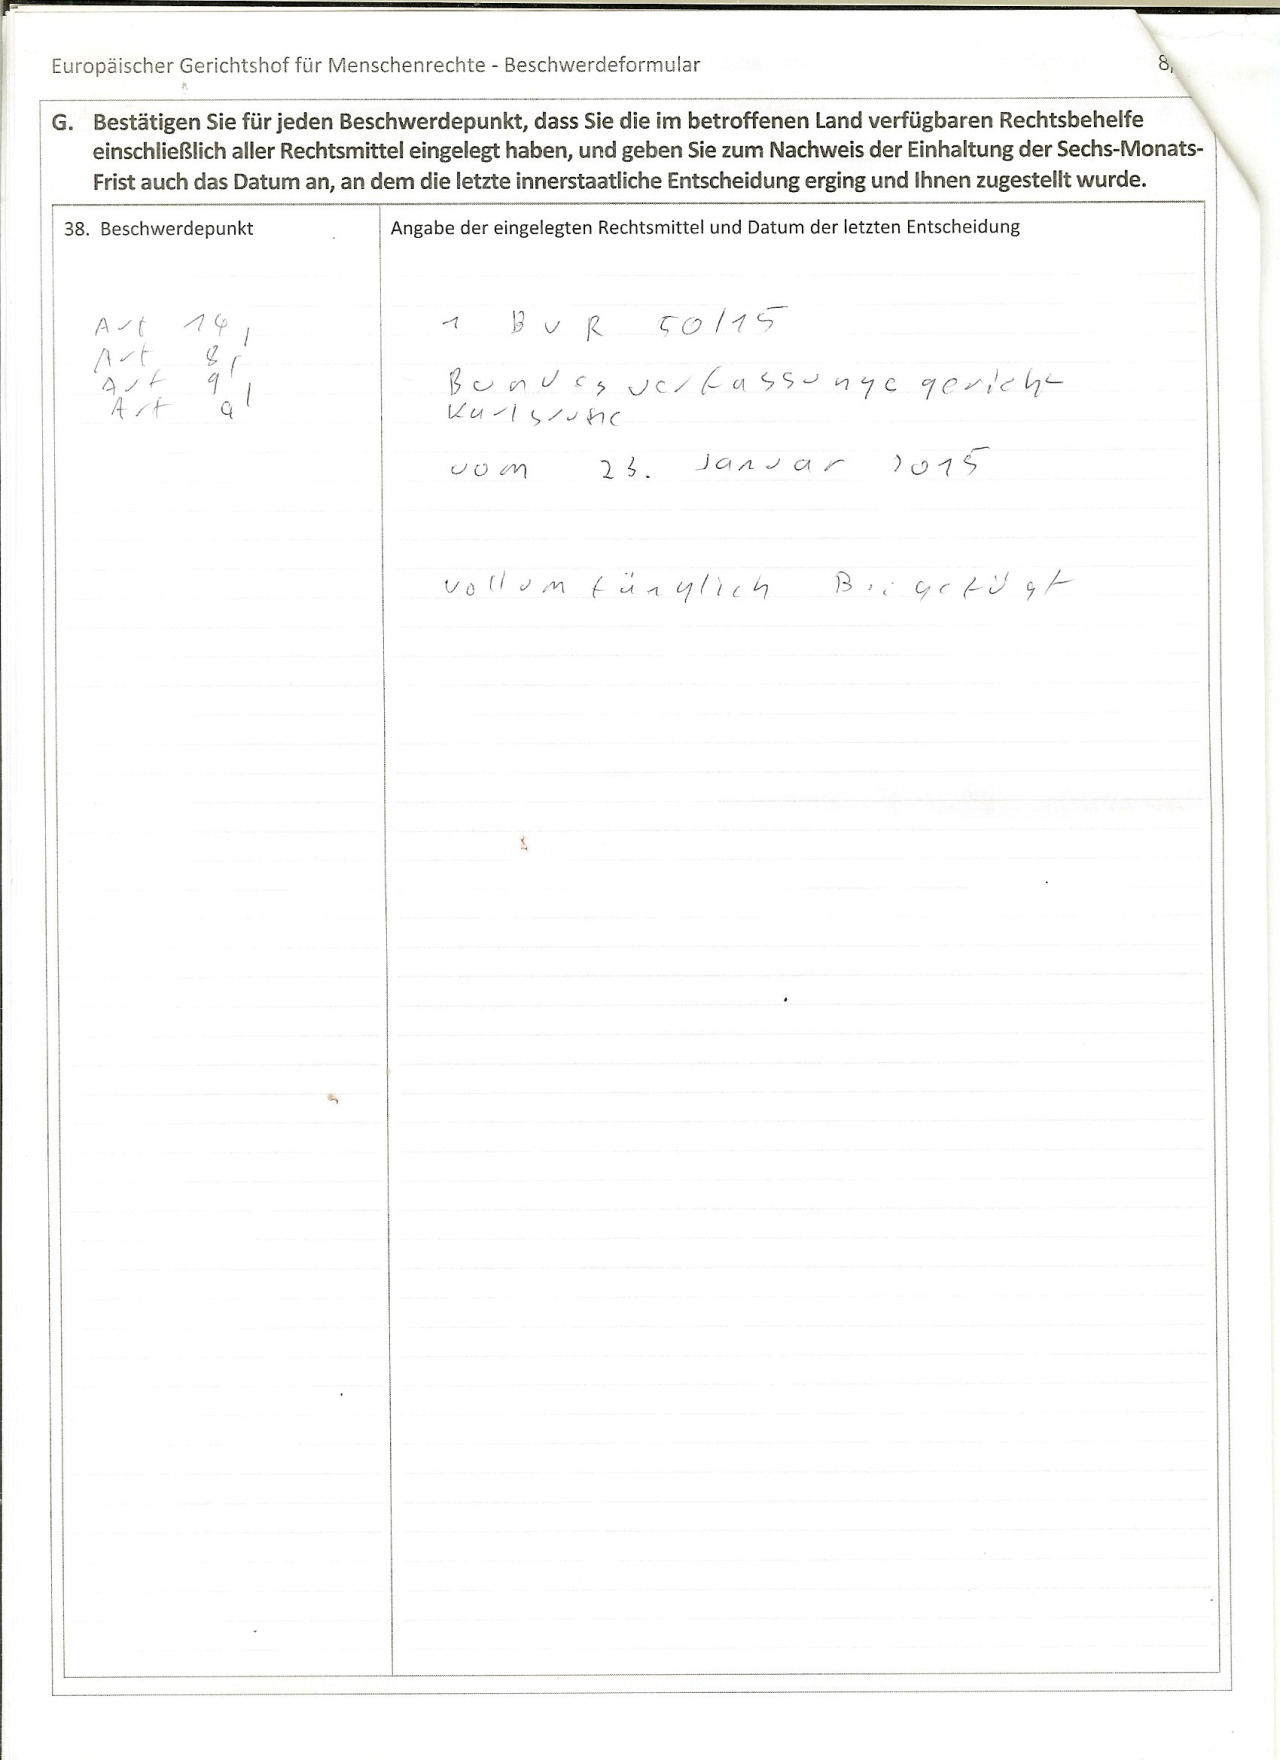 Europäischer Gerichtshof für Menschenrechte - Beschwerdeformular 8
G. Bestätigen Sie für jeden Beschwerdepunkt, dass Sie die im betroffenen Land verfügbaren Rechtsbehelfe
einschließlich aller Rechtsmittel eingelegt haben, und geben Sie zum Nachweis der Einhaltung der Sechs-Monats-
Frist auch das Datum an, an dem die letzte innerstaatliche Entscheidung erging und Ihnen zugestellt wurde.
38. Beschwerdepunkt
Angabe der eingelegten Rechtsmittel und Datum der letzten Entscheidung
Art 14,
Art 8,
Art 9,
Art
1 BvR 50/15
Bundesverfassungsgericht
Karlsruhe
vom 23. Januar 2015
vollumfänglich Beigefügt